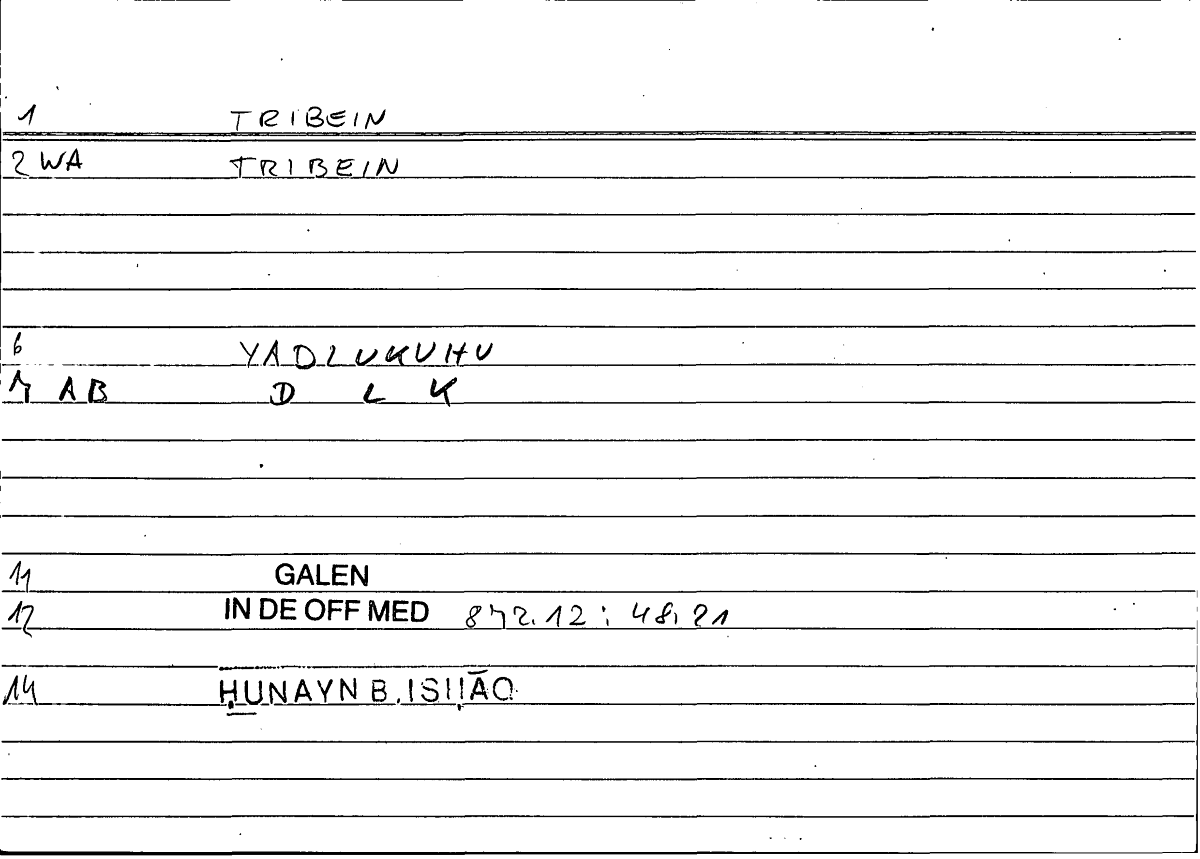 1 TRIBEIN
2 WA TRIBEIN
6 YADLUKUHU
7 AB D L K
11 GALEN
12 IN DE OFF MED 872.12 : 48.21
14 ḤUNAYN B. ISḤĀQ